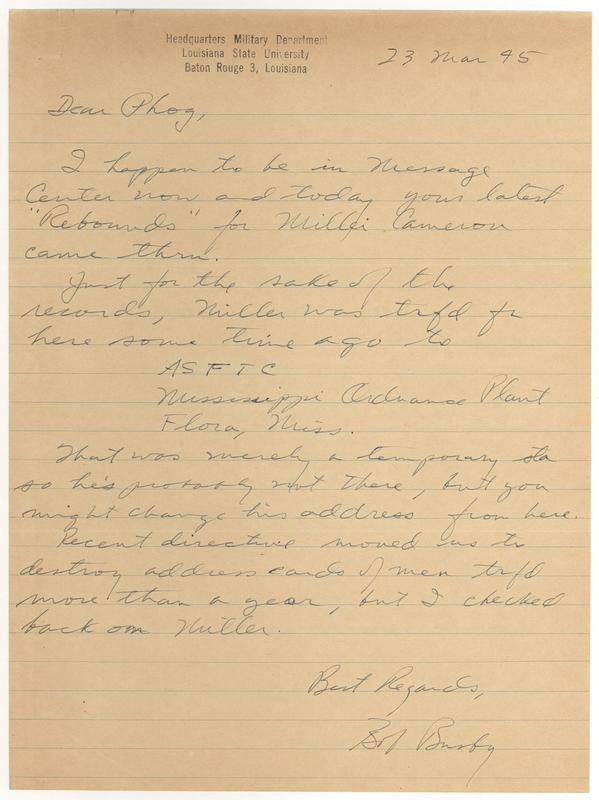 Headquarters Military Department
Louisiana State University
Baton Rouge 3, Louisiana
23 Mar 45
Dear Phog,
I happen to be in Message
Center now and today your latest
"Rebounds" for Miller Cameron
came thru.
Just for the sake of the
records, Miller was trfd fr
here some time ago to
ASFTC
Mississippi Ordnance Plant
Flora, Miss.
That was merely a temporary sta
so he's probably not there, but you
might change his address from here.
Recent directive moved us to
destroy address cards of men trfd
more than a year, but I checked
back on Miller.
Best Regards,
Bob Busby